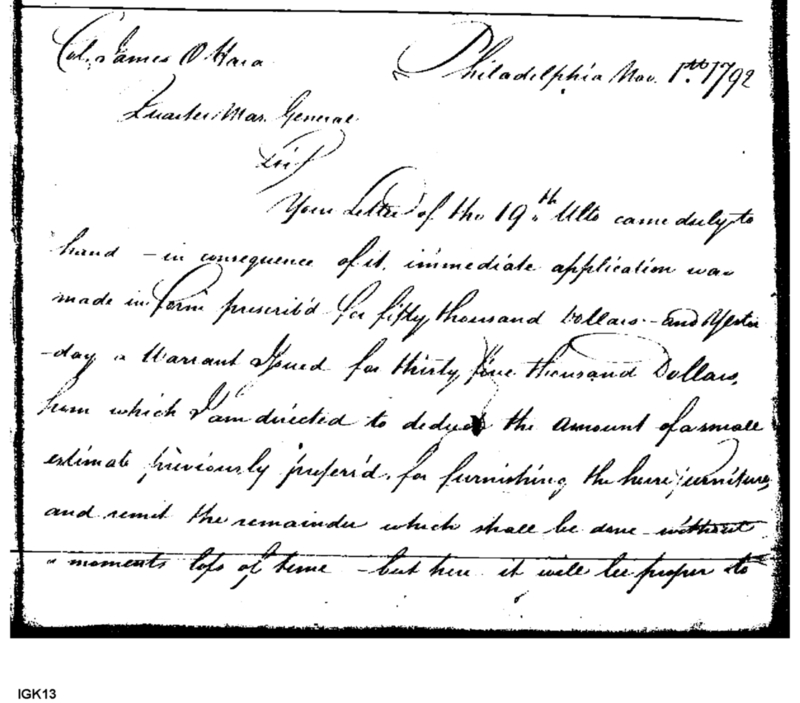 Col. James O Hara Philadelphia Nov. 1st. 1792
Quarter Mas. General
Sir
Your Letter of the 19th. Ulto came duly to
hand – in consequence of it, immediate application was
made in form prescrib'd for fifty thousand Dollars – and Yester
-day a Warrant Issued for thirty five thousand Dollars,
from which I am directed to deduct the amount of a small
estimate previously prefer'd, for furnishing the
and remit the remainder which shall be done without
a moments loss of time – but here it will be proper to
IGK13